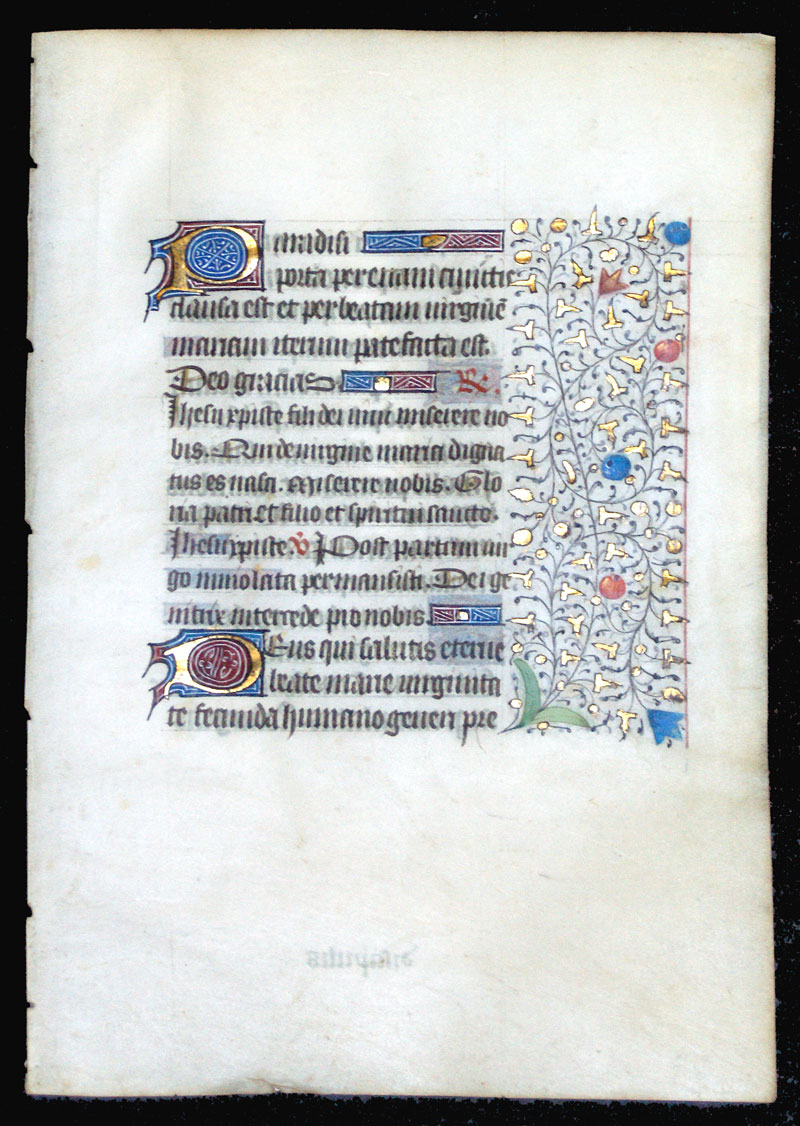 Paradisi
porta per euam cunctis
clausa est et per beatam uirginē
mariam iterum patefacta est.
Deo gracias R.
Ihesu xpiste fili dei uiui miserere no
bis. Qui de uirgine maria digna
tus es nasci. Miserere nobis. Glo
ria patri et filio et spiritui sancto.
Ihesu xpiste. v Post partum uir
go inuiolata permansisti. Dei ge
nitrix intercede pro nobis.
Deus qui salutis eterne
beate marie uirginita
te fecunda humano generi pre